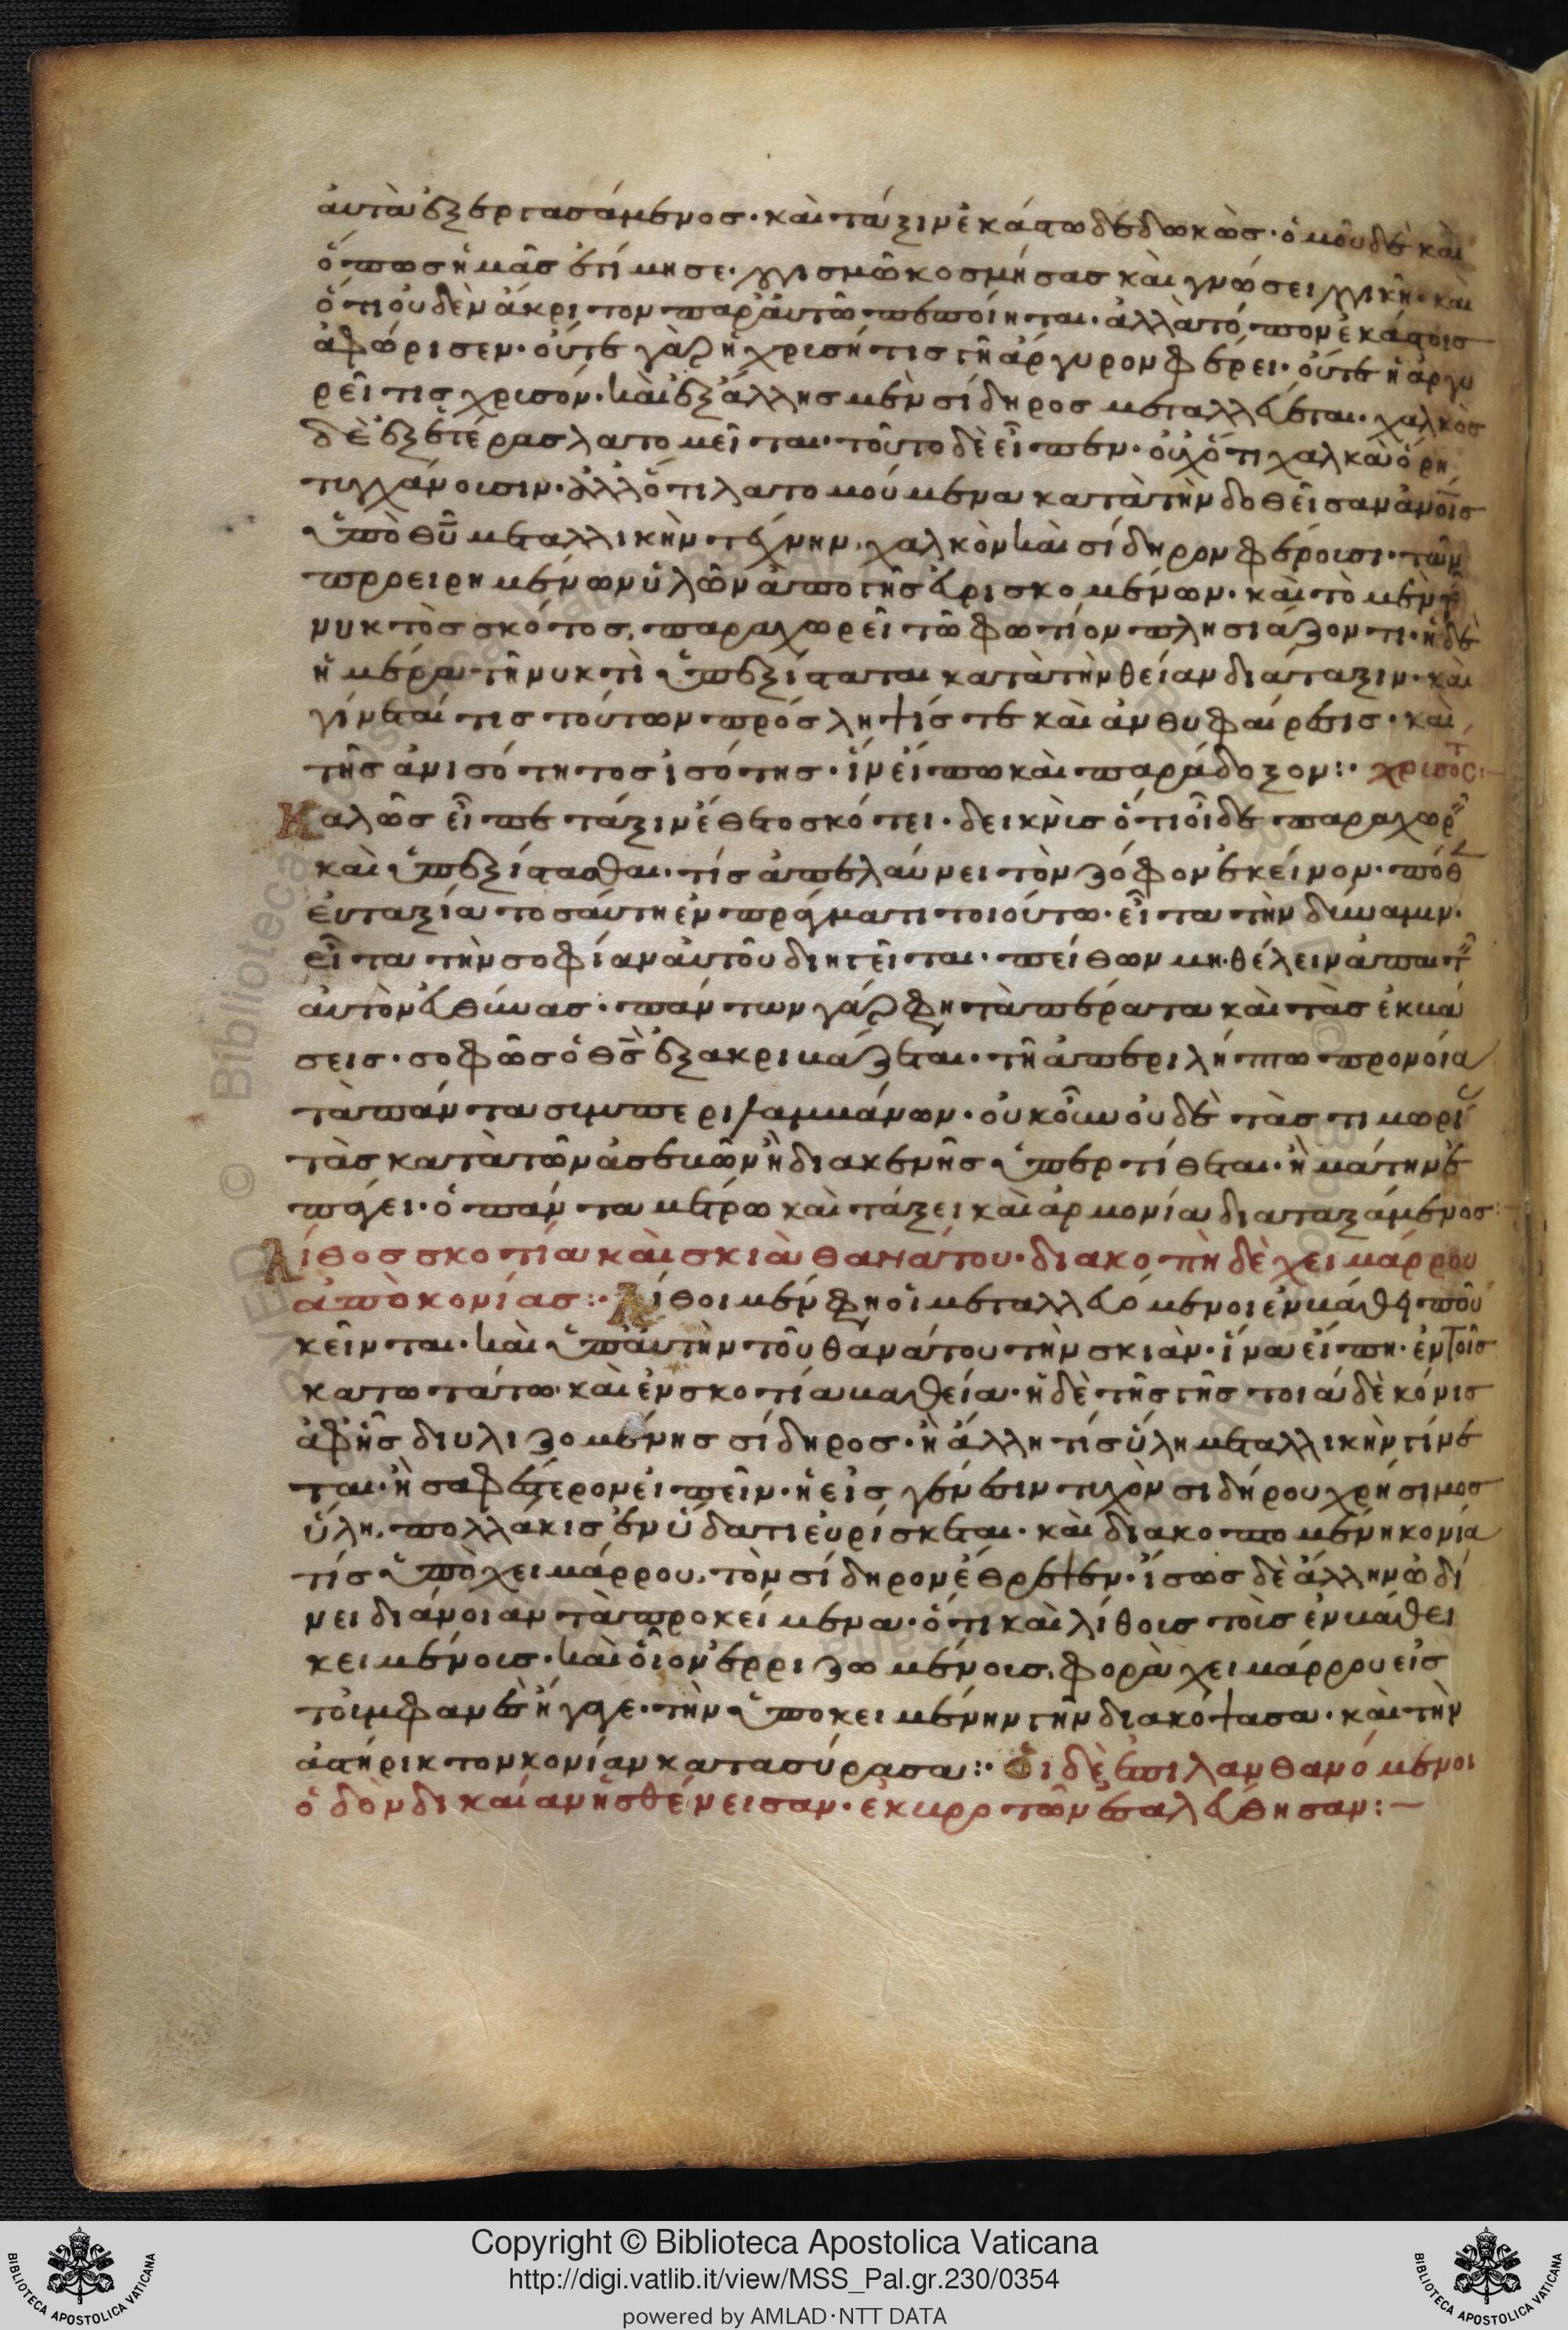 αὐτὰ ἐξεργασάμενος· καὶ τάξιν ἑκάστω δεδωκὼς· ὁμοῦ δὲ καὶ
ὅπως ἡμᾶς ἐτίμησε· λογισμῶ κοσμήσας καὶ γνώσει λογικῆ· καὶ
ὅτι οὐδὲν ἄκριτον παρ' αὐτῶ πεποίηται· ἀλλὰ τόπον ἑκάστοις
ἀφώρισεν· οὔτε γὰρ ἡ χρυσῖτις γῆ ἄργυρον φέρει· οὔτε ἡ ἀργυ
ρεῖτις χρυσόν· καὶ ἐξ ἄλλης μὲν σίδηρος μεταλλεύεται· χαλκὸς
δὲ ἐξ ἑτέρας λατομεῖται· τοῦτο δὲ εἶπεν· οὐχ' ὅτι χαλκᾶ ὄρη
τυγχάνουσιν· ἀλλ' ὅτι λατομούμενα κατὰ τὴν δοθεῖσαν ἀνοις
ὑπὸ θυ μεταλλικὴν τέχνην, χαλκὸν καὶ σίδηρον φέρουσι· τῶν
προειρημένων ὑλῶν ἀπὸ γῆς εὑρισκομένων· καὶ τὸ μὲν τῆς
νυκτὸς σκότος, παραχωρεῖ τῶ φωτὶ ὂν πλησιάζοντι· ἡ δὲ
ἡμέρα τῆ νυκτὶ ὑπεξίσταται κατὰ τὴν θείαν διάταξιν· καὶ
γίνεταί τις τούτων πρόσληψίς τε καὶ ἀνθυφαίρεσις· καὶ
τῆς ἀνισότητος ἰσότης· ἵν' εἴπω καὶ παράδοξον:· χρυσοστ:
Καλῶς εἶπε τάξιν ἔθετο σκότει· δεικνὺς ὅτι οἶδε παραχωρεῖν
καὶ ὑπεξίστασθαι· τίς ἀπελαύνει τὸν ζόφον ἐκεῖνον· πόθεν
εὐταξία τοσαύτη ἐν πράγματι τοιούτω· εἶτα τὴν δύναμιν·
εἶτα τὴν σοφίαν αὐτοῦ διηγεῖται· πείθων μὴ θέλειν ἀπαιτεῖν
αὐτὸν εὐθύνας· πάντων γάρ φη τὰ πέρατα καὶ τὰς ἐκβά
σεις· σοφῶς ὁ θς ἐξακριβάζεται· τῆ ἀπεριλήπτω προνοία
τὰ πάντα συμπεριλαμβάνων· οὐκοῦν οὐδὲ τὰς τιμωρίας
τὰς κατὰ τῶν ἀσεβῶν ἢ διακενῆς ὑπερτίθεται· ἢ μάτην ἐ
πάγει· ὁ πάντα μέτρω καὶ τάξει καὶ ἁρμονία διαταξάμενος:
Λίθος σκοτία καὶ σκιὰ θανάτου· διακοπὴ δὲ χειμάρρου
ἀπὸ κονίας:· Λίθοι μέν φη οἱ μεταλλευόμενοι ἐν βάθει που
κεῖνται· καὶ ὑπ' αὐτὴν τοῦ θανάτου τὴν σκιὰν· ἵνα εἴπη· ἐν τοῖς
κατωτάτω· καὶ ἐν σκοτία βαθεία· ἡ δὲ τῆς γῆς τοιάδε κόνις
ἀφ' ἧς διυλιζομένης σίδηρος· ἢ ἄλλη τίς ὕλη μεταλλικὴν γίνε
ται· ἢ σαφέστερον εἰπεῖν· ἡ εἰς γένεσιν τυχὸν σιδήρου χρήσιμος
ὕλη, πολλάκις ἐν ὕδατι εὑρίσκεται· καὶ διακοπομένη κονία
τίς ὑπὸ χειμάρρου, τὸν σίδηρον ἔθρεψεν· ἴσως δὲ ἄλλην ὠδί
νει διάνοιαν τὰ προκείμενα· ὅτι καὶ λίθοις τοῖς ἐν βάθει
κειμένοις· καὶ οἷον ἐρριζωμένοις, φορὰ χειμάρρου εἰς
τοὐμφανὲς ἤγαγε· τὴν ὑποκειμένην γῆν διακόψασα· καὶ τὴν
ἀστήρικτον κονίαν κατασύρασα:· Οἱ δὲ ἐπιλανθανόμενοι
ὁδὸν δικαίαν ἠσθένησαν· ἐκ βροτῶν ἐσαλεύθησαν:
Copyright © Biblioteca Apostolica Vaticana
http://digi.vatlib.it/view/MSS_Pal.gr.230/0354
powered by AMLAD·NTT DATA